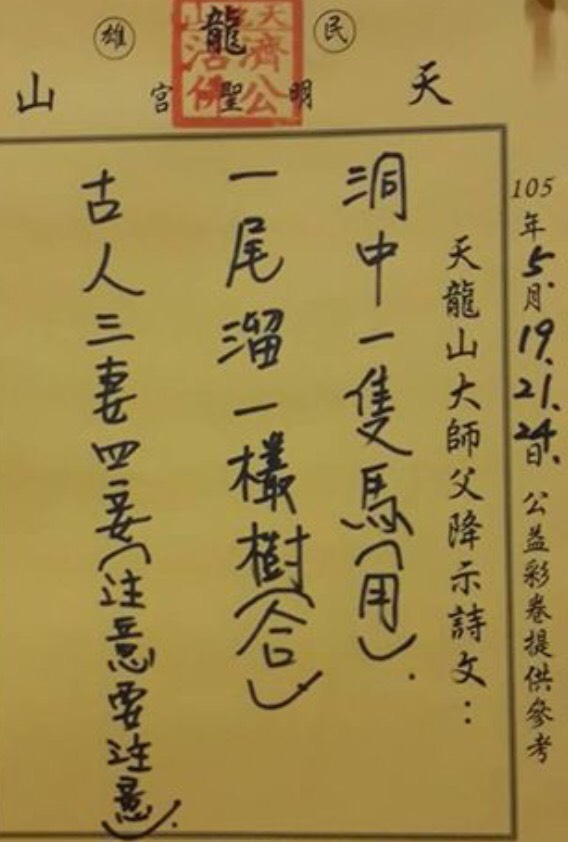 民雄
天龍山
明聖宮
濟公
活佛
105年5月19.21.24日.公益彩卷提供參考
天龍山大師父降示詩文：
洞中一隻馬(用).
一尾溜一欉樹(合).
古人三妻四妾(注意要注意).